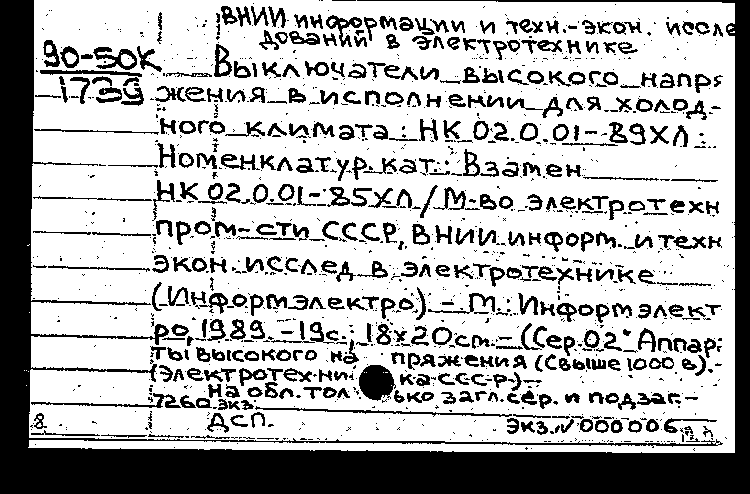 ВНИИ информации и техн.-экон. иссле
дований в электротехнике
90-50К
1739
Выключатели высокого напря
жения в исполнении для холод-
ного климата: НК 02.0.01-89ХЛ:
Номенклатур. кат.: Взамен
НК 02.0.01-85ХЛ / М-во электротехн
пром-сти СССР, ВНИИ информ. и техн
экон. исслед в электротехнике
(Информэлектро) - М.: Информэлект
ро, 1989. -19с.; 18х20cm.- (Сер.02 "Аппара
ты высокого на пряжения (Свыше 1000 в).-
(Электротехни ка СССР.)-
На обл. тол ько загл.сер. и подзаг.-
7260 экз.
8. ДСП. Экз.№000006